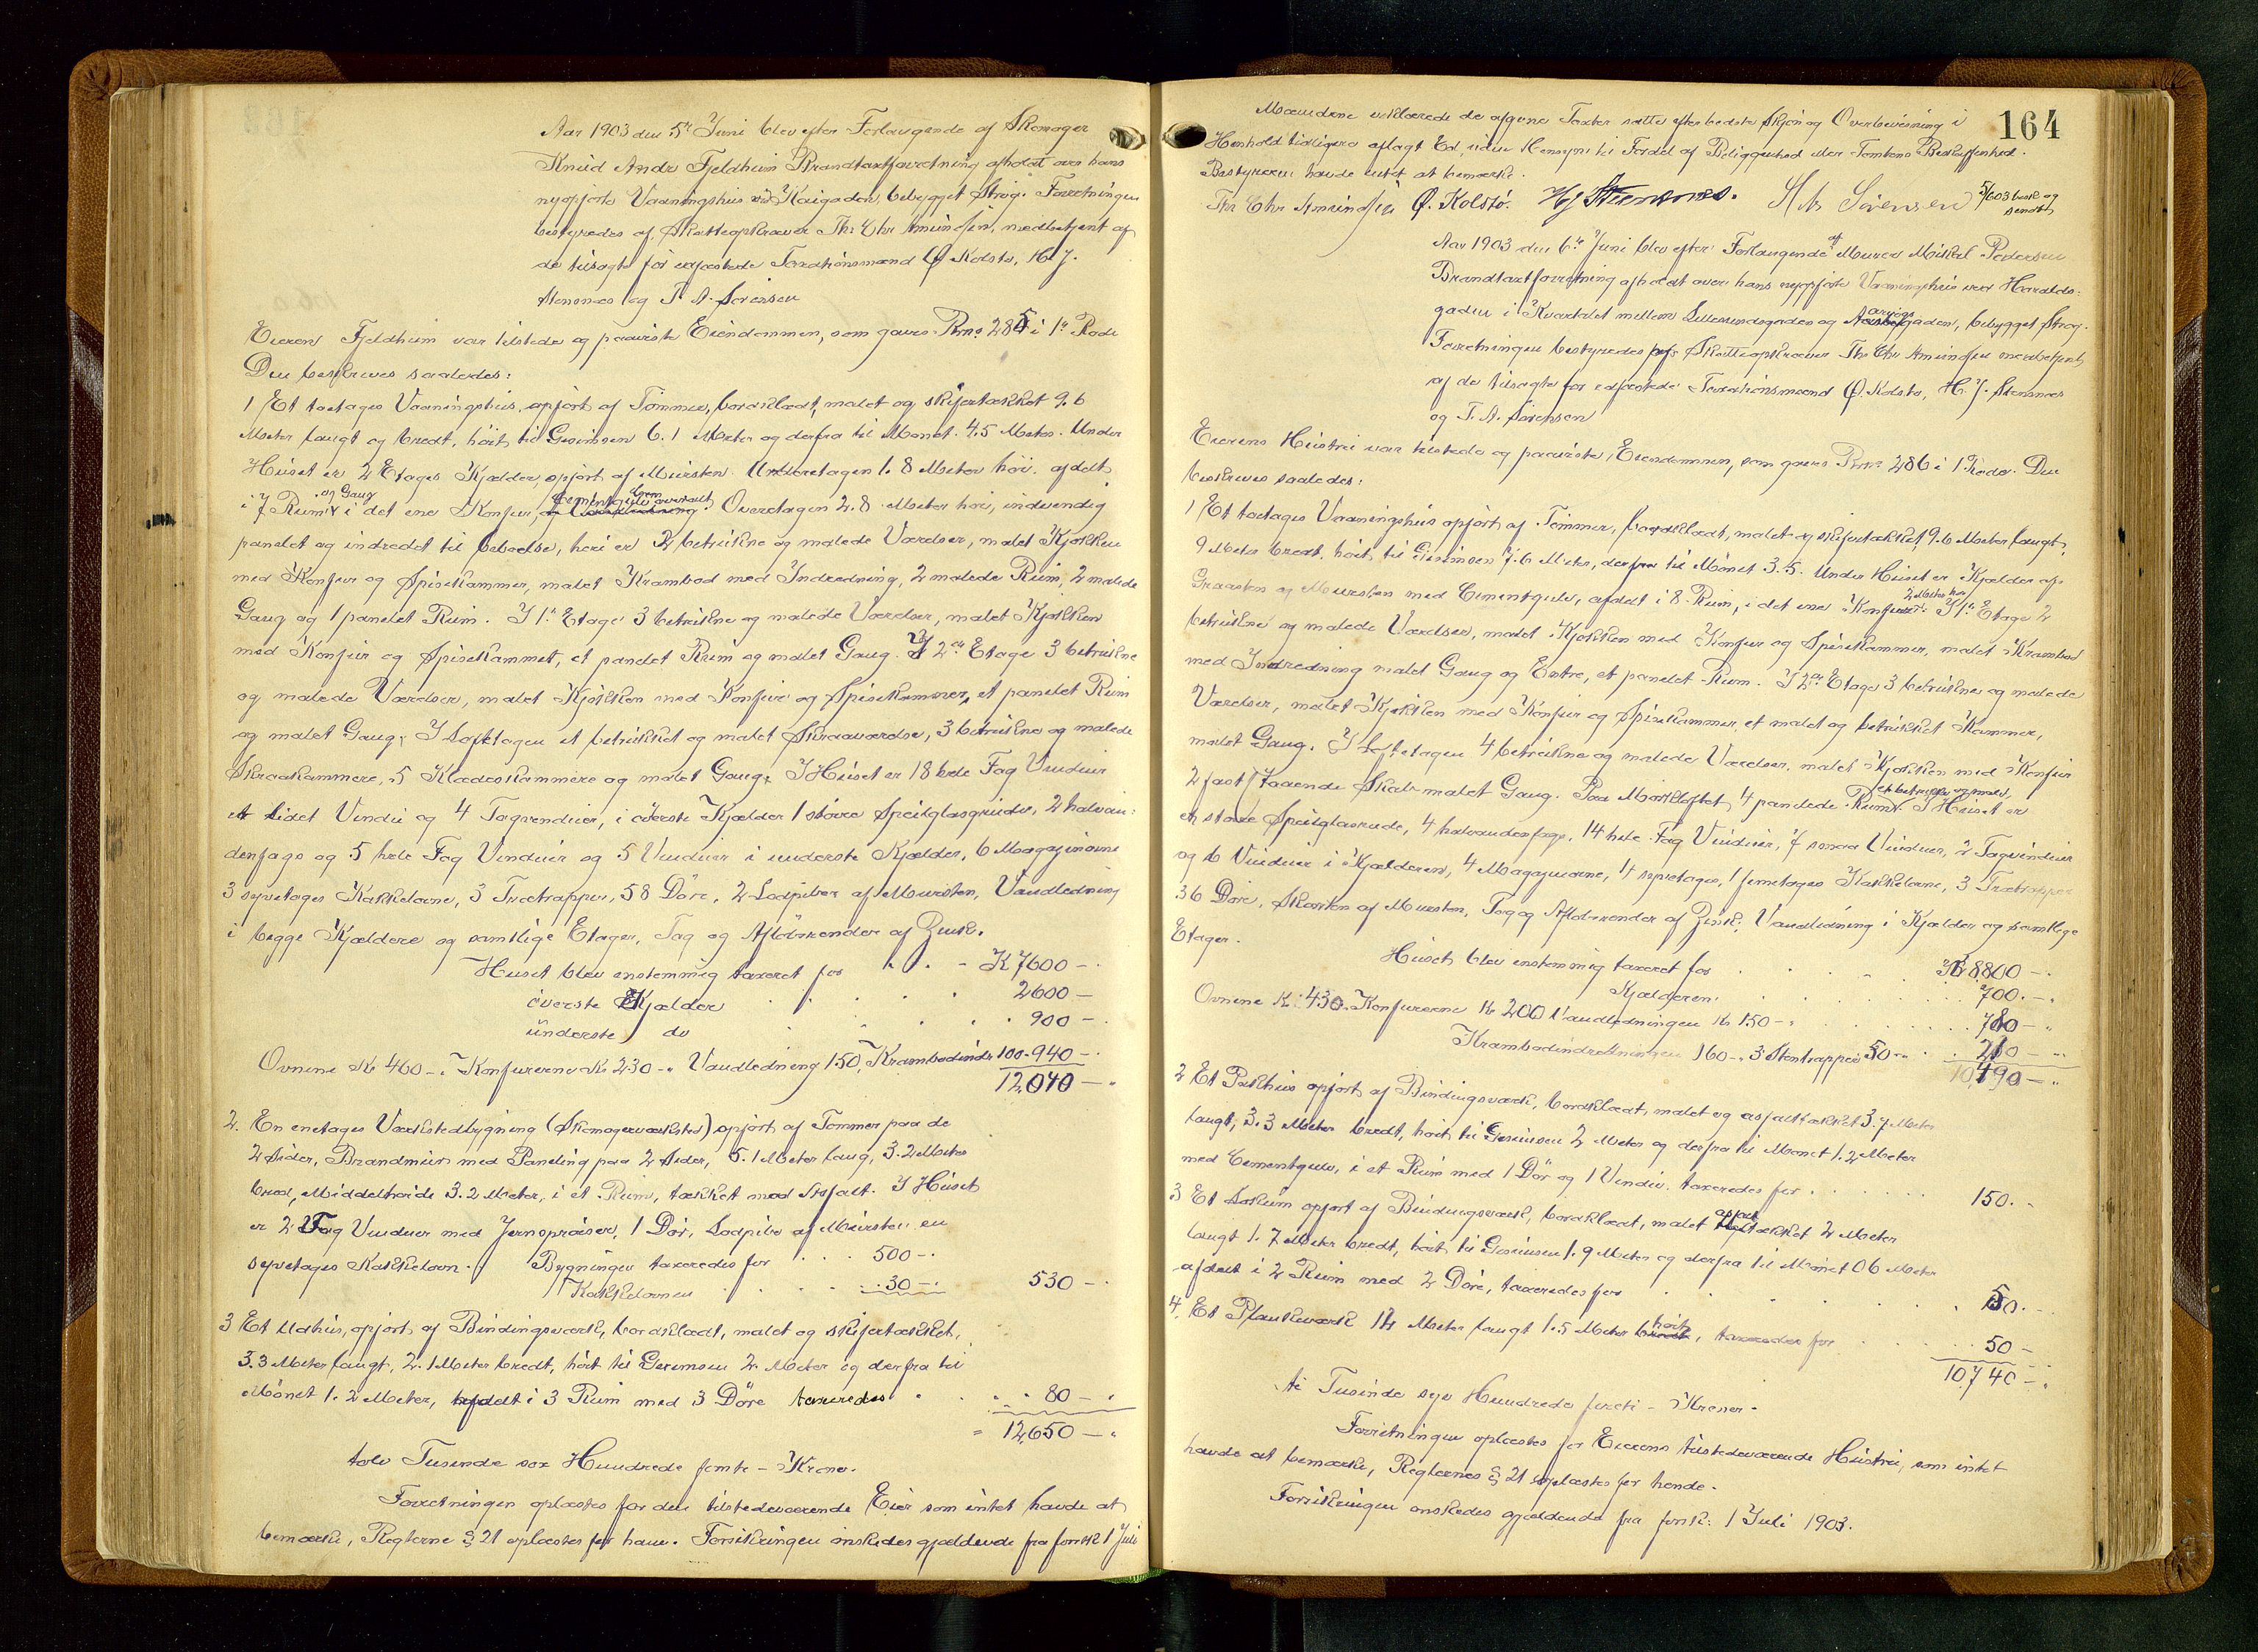 Aar 1903 den 5te Juni blev efter Forlangende af Skomager
Knud Andr Fjeldheim Brandtaxtforretning afholdt over hans
nyopførte Vaaningshus ved Kaigaden, bebygget Strøg. Forretningen
bestyredes af Skatteopkræver Ths Chr Amundsen, medbetjent af
de tilsagte for edfæstede Taxationsmænd Q. Kolstø, H. J.
Stensnes og T. A. Sørensen
Eieren Fjeldheim var tilstede og paaviste Eiendommen, som gaves Brno. 285 i 1te Rode
Den beskrives saaledes:
1 Et toetages Vaaningshus, opført af Tømmer, bordklædt, malet og skifertækket 9.6
Meter langt og bredt, høit til Gesimsen 6.1 Meter og derfra til Mønet 4.5 Meter. Under
Huset er 2 Etages Kjælder, opført af Mursten. Underetagen 1.8 Meter høi, afdelt
i 7 Rum og Gang i det ene Komfur, Cementgulv overalt. Overetagen 2.8 Meter høi, indvendig
panelet og indredet til Beboelse, heri er 2 betrukne og malede Værelser, malet Kjøkken
med Komfur og Spisekammer, malet Krambod med Indredning, 2 malede Rum, 2 malede
Gang og 1 panelet Rum. I 1te Etage 3 betrukne og malede Værelser, malet Kjøkken
med Komfur og Spisekammer, et panelet Rum og malet Gang. I 2den Etage 3 betrukne
og malede Værelser, malet Kjøkken med Komfur og Spisekammer, et panelet Rum
og malet Gang. I Loftetagen et betrukket og malet Skraaværelse, 3 betrukne og malede
Skraakammere, 5 Klædeskammere og malet Gang. I Huset er 18 hele Fag Vinduer
et lidet Vindu og 4 Tagvinduer, i øverste Kjælder 1 større Speilglasrude, 2 halvan-
denfags og 5 hele Fag Vinduer og 5 Vinduer i underste Kjælder, 6 Magazinovne
3 syvetages Kakkelovne, 3 Trætrapper, 58 Døre, 2 Lodpiber af Mursten, Vandledning
i begge Kjældere og samtlige Etager, Tag og Afløbsrender af Zink.
Huset blev enstemmig taxeret for K 7600 -
øverste Kjælder 2600 -
underste do 900 -
Ovnene Kr 460 - Komfurerne Kr 230 - Vandledning 150, Krambodindr 100 - 940 -
12,040 -
2. En enetages Værkstedbygning (Skomagerværksted) opført af Tømmer paa de
2 Sider, Brandmur med Paneling paa 2 Sider, 5.1 Meter lang, 3.2 Meter
bred, Middelhøide 3.2 Meter, i et Rum, tækket med Asfalt. I Huset
er 2 Fag Vinduer med Jernsprosser, 1 Dør, Lodpibe af Mursten en
syvetages Kakkelovn. Bygningen taxeredes for 500 -
Kakkelovnen 30 - 530 -
3 Et Udhus, opført af Bindingsværk, bordklædt, malet og skifertækket,
3.3 Meter langt, 2.1 Meter bredt, høit til Gesimsen 2. Meter og derfra til
Mønet 1.2 Meter, afdelt i 3 Rum med 3 Døre taxeredes 80 -
12,650 -
tolv Tusinde sex Hundrede femti - Kroner.
Forretningen oplæstes for den tilstedeværende Eier som intet havde at
bemærke, Reglerne § 21 oplæstes for ham. Forsikringen ønskedes gjældende fra førstk 1 Juli
164
Mændene erklærede de afgivne Taxter satte efter bedste Skjøn og Overbevisning i
Henhold tidligere aflagt Ed, uden Hensyn til Fordel af Beliggenhed eller Tomtens Beskaffenhed.
Bestyreren havde intet at bemærke.
Ths Chr Amundsen Q. Kolstø. HJ Stensnæs. T A Sørensen 5/6 03 besk og sendt
Aar 1903 den 6te Juni blev efter Forlangende af Murer Mikal Pedersen
Brandtaxtforretning afholdt over hans nyopførte Vaaningshus ved Haralds-
gaden i Kvartalet mellem Lillesundsgaden og gaden, bebygget Strøg.
Forretningen bestyredes af Skatteopkræver Ths Chr Amundsen medbetjent
af de tilsagte for edfæstede Taxationsmænd Q. Kolstø, H. J. Stensnæs
og T. A. Sørensen
Eierens Hustru var tilstede og paaviste Eiendommen, som gaves Brno. 286 i 1 Rode. Den
beskrives saaledes:
1 Et toetages Vaaningshus opført af Tømmer, bordklædt, malet og skifertækket, 9.6 Meter langt,
9 Meter bredt, høit til Gesimsen 7.6 Meter, derfra til Mønet 3.5. Under Huset er Kjælder af
Graasten og Mursten med Cementgulv, afdelt i 8 Rum, i det ene Komfur. 2 Meter høi I 1te Etage 2
betrukne og malede Værelser, malet Kjøkken med Komfur og Spisekammer, malet Krambod
med Indredning malet Gang og Entre, et panelet Rum. I 2den Etage 3 betrukne og malede
Værelser, malet Kjøkken med Komfur og Spisekammer, et malet og betrukket Kammer,
malet Gang. I Loftetagen 4 betrukne og malede Værelser, malet Kjøkken med Komfur
2 faststaaende Skabe malet Gang. Paa Mørkloftet 4 panelede Rum, et betrukket og malet I Huset er
en større Speilglasrude, 4 halvandenfags, 14 hele Fag Vinduer, 7 smaa Vinduer, 2 Tagvinduer
og 6 Vinduer i Kjælderen, 4 Magazinovne, 4 syvetages, 1 femetages Kakkelovne, 3 Trætrapper
36 Døre, Skorsten af Mursten, Tag og Afløbsrender af Zink, Vandledning i Kjælder og samtlige
Etager.
Huset blev enstemmig taxeret for Kr 8800 -
Kjælderen 700. -
Ovnene Kr 430. Komfurerne Kr 200 Vandledningen Kr 150 - 780 -
Krambodindredningen 160 - 3 Stentrapper 50 - 210 -
10,490 -
2 Et Pakhus opført af Bindingsværk, bordklædt, malet og asfalttækket 3.7 Meter
langt, 3.3 Meter bredt, høit til Gesimsen 2 Meter og derfra til Mønet 1.2 Meter
med Cementgulv, i et Rum med 1 Dør og 1 Vindu taxeredes for 150. -
3 Et Lokum opført af Bindingsværk, bordklædt, malet asfalttækket 2 Meter
langt 1.7 Meter bredt, høit til Gesimsen 1.9 Meter og derfra til Mønet 0 6 Meter
afdelt i 2 Rum med 2 Døre, taxeredes for 50. -
4. Et Plankeværk 14 Meter langt 1.5 Meter høit, taxeredes for 50 -
10,740 -
ti Tusinde syv Hundrede førti - Kroner.
Forretningen oplæstes for Eierens tilstedeværende Hustru, som intet
havde at bemærke, Reglernes § 21 oplæstes for hende.
Forsikringen ønskedes gjældende fra førstk: 1 Juli 1903.